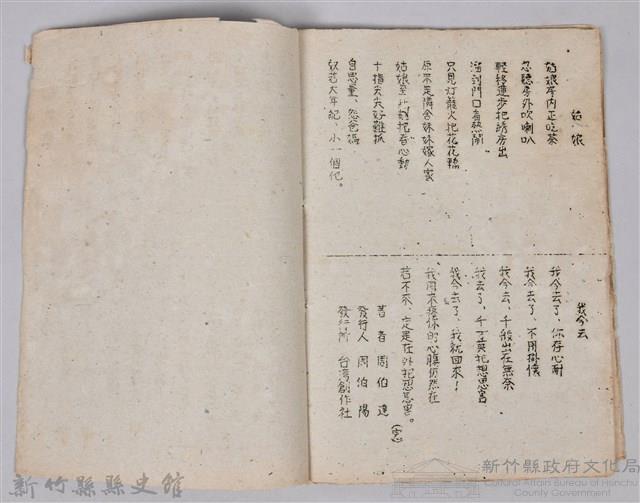 姑娘
姑娘房内正吃茶
忽聽房外吹喇叭
輕移蓮步把綉房出
溜到門口看熱鬧
只見灯籠火把花花轎
原來是隔舍妹妹嫁人家
姑娘至此刻把春心動
十指尖尖好難抓
自思量、怨爸媽
奴若大年紀、小一個他。
我今去
我今去了、你存心耐
我今去了、不用掛懷
我今去、千般出在無奈
我去了、千万莫把想思害
我今去了、我就回來！
我回來疼你的心腸仍然在
若不來、定是在外把想思害。
(完)
著者 周伯達
發行人 周伯陽
發行所 台湾創作社
新竹縣縣史館
新竹縣政府文化局
Cultural Affairs Bureau of Hsinchu
County Government